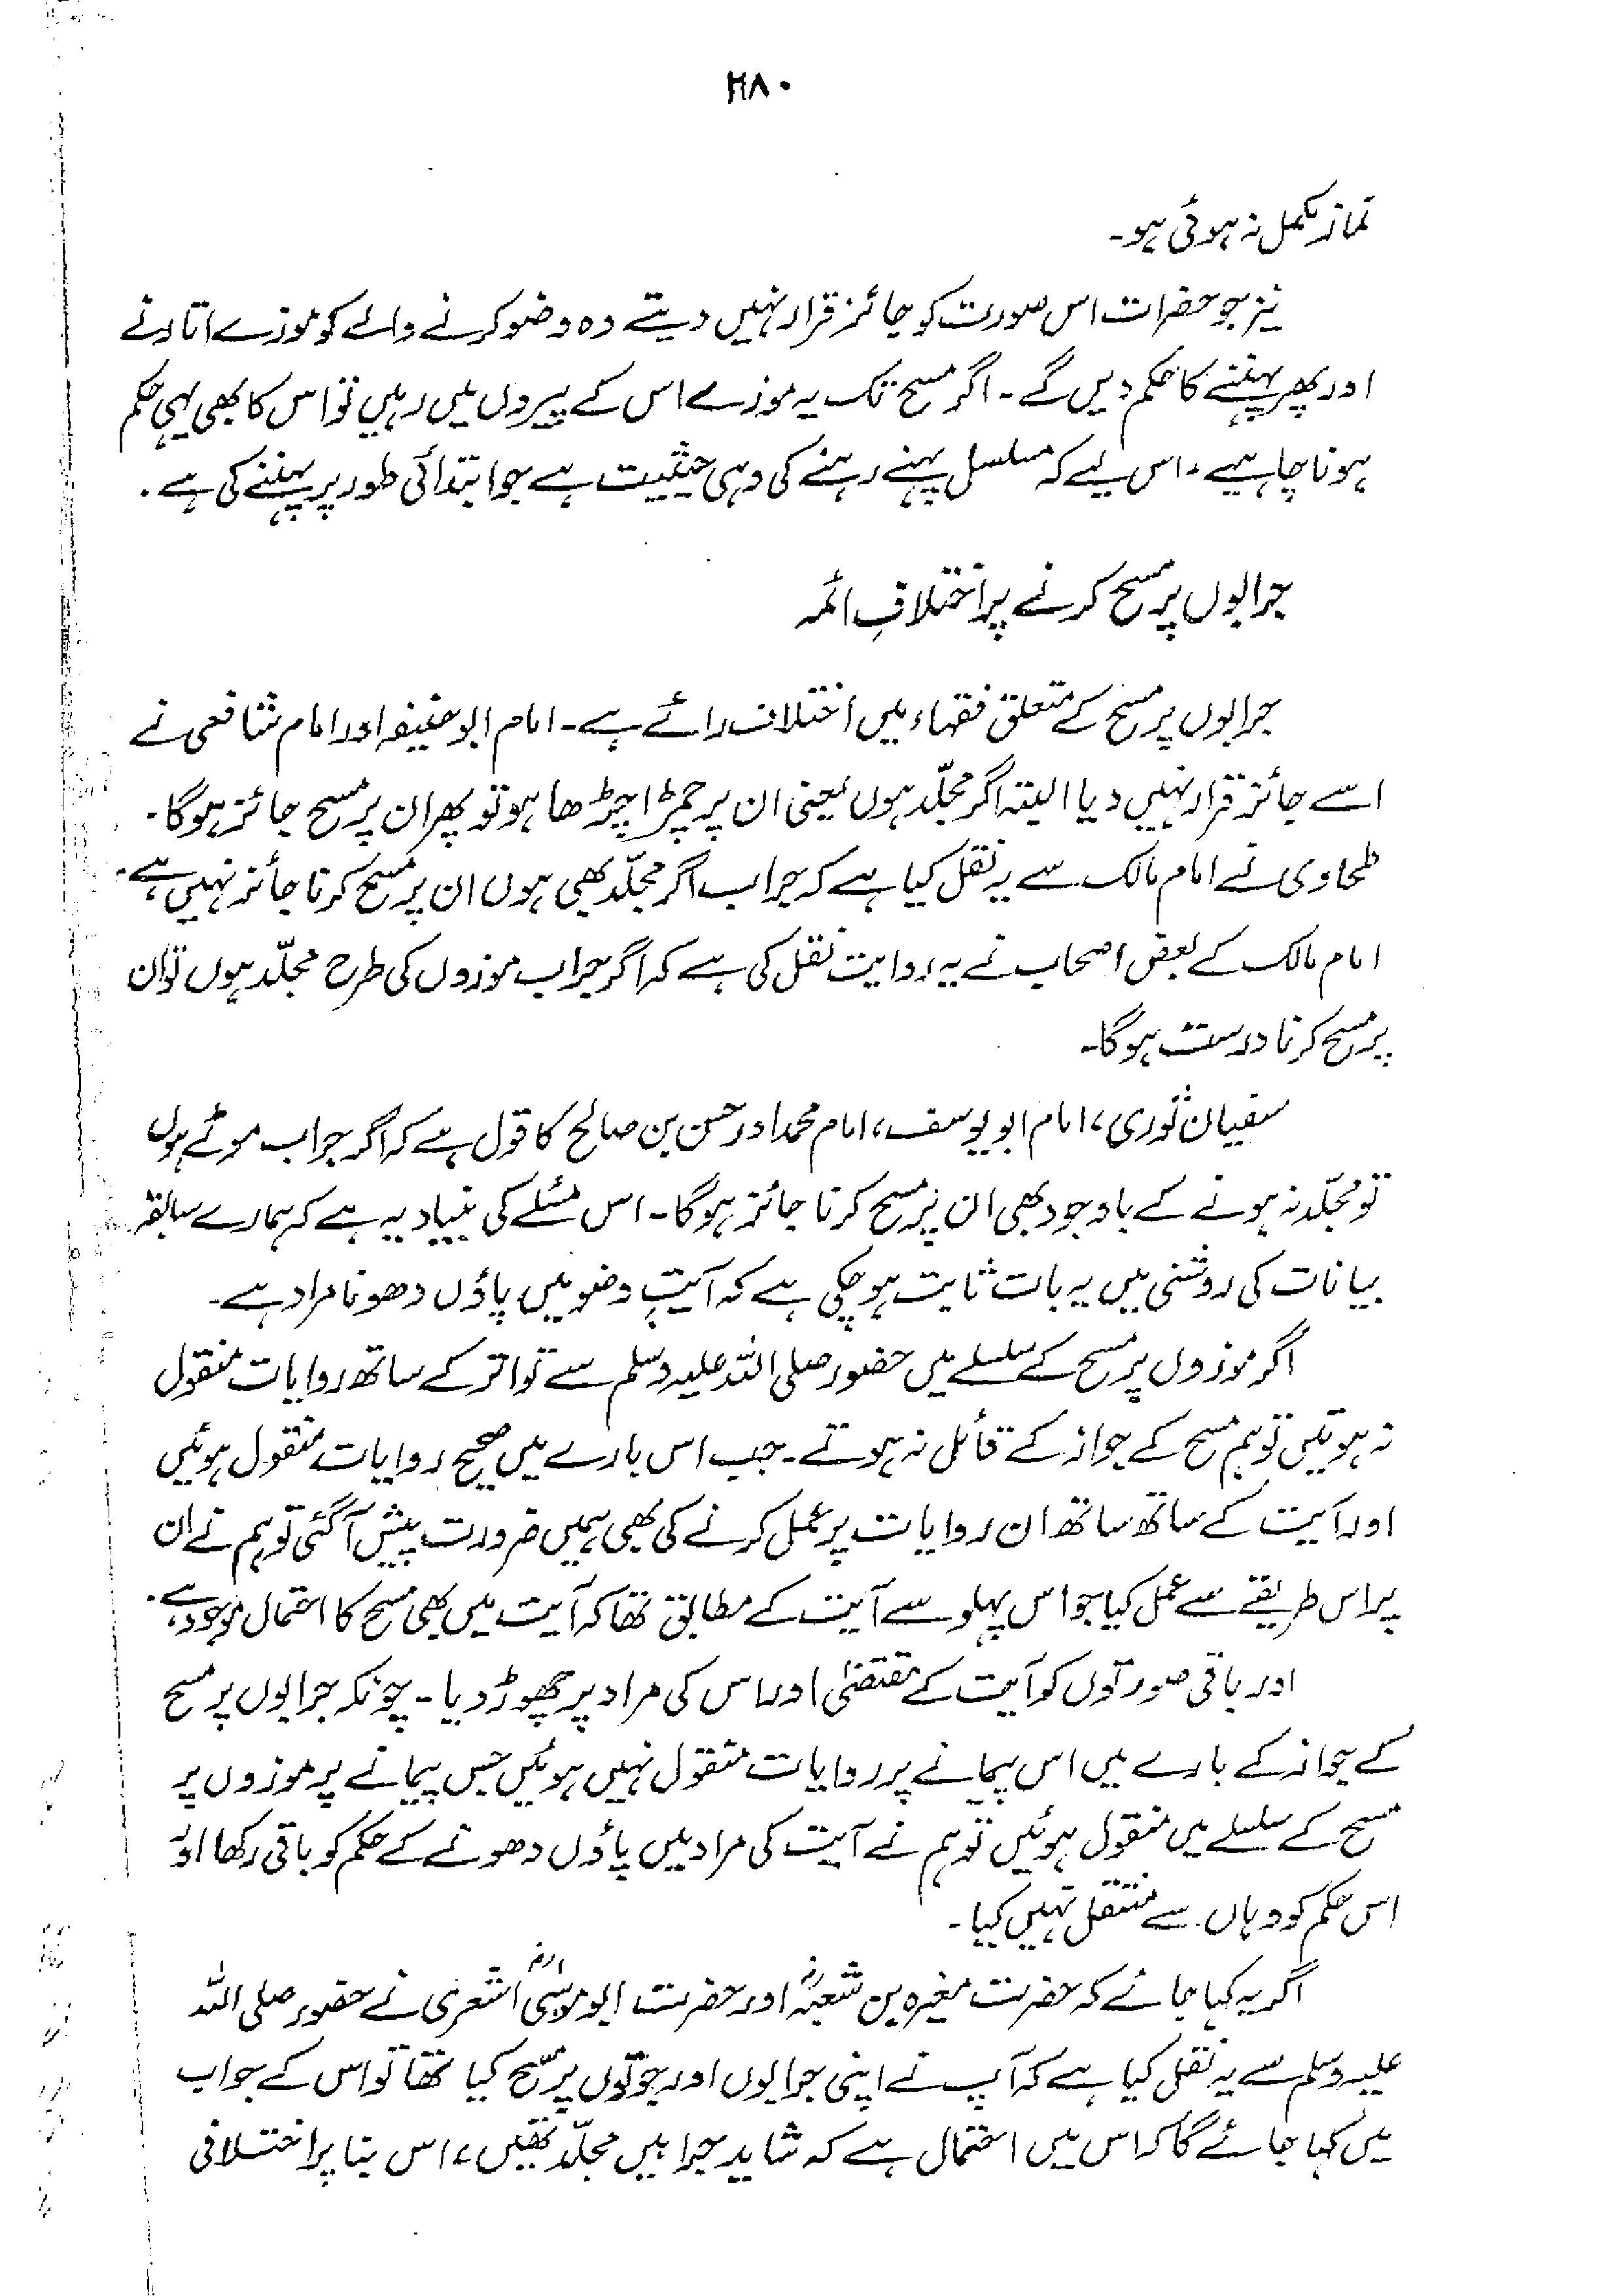 ۲۸۰
نماز مکمل نہ ہوئی ہو۔
نیز جو حضرات اس صورت کو جائز قرار نہیں دیتے وہ وضو کرنے والے کو موزے اتارنے
اور پھر پہننے کا حکم دیں گے۔ اگر مسح تک یہ موزے اس کے پیروں میں رہیں تو اس کا بھی یہی حکم
ہونا چاہیے، اس لیے کہ مسلسل پہنے رہنے کی وہی حیثیت ہے جو ابتدائی طور پر پہننے کی ہے۔
جرابوں پر مسح کرنے پر اختلافِ ائمہ
جرابوں پر مسح کے متعلق فقہاء میں اختلاف رائے ہے۔ امام ابو حنیفہ اور امام شافعی نے
اسے جائز قرار نہیں دیا البتہ اگر مجلّد ہوں یعنی ان پر چمڑا چڑھا ہو تو پھر ان پر مسح جائز ہوگا۔
طحاوی نے امام مالک سے یہ نقل کیا ہے کہ جراب اگر مجلّد بھی ہوں ان پر مسح کرنا جائز نہیں ہے۔
امام مالک کے بعض اصحاب نے یہ روایت نقل کی ہے کہ اگر جراب موزوں کی طرح مجلّد ہوں تو ان
پر مسح کرنا درست ہوگا۔
سفیان ثوری، امام ابو یوسف، امام محمد اور حسن بن صالح کا قول ہے کہ اگر جراب موٹے ہوں
تو مجلّد نہ ہونے کے باوجود بھی ان پر مسح کرنا جائز ہوگا۔ اس مسئلے کی بنیاد یہ ہے کہ ہمارے سابقہ
بیانات کی روشنی میں یہ بات ثابت ہو چکی ہے کہ آیتِ وضو میں پاؤں دھونا مراد ہے۔
اگر موزوں پر مسح کے سلسلے میں حضور صلی اللہ علیہ وسلم سے تواتر کے ساتھ روایات منقول
نہ ہوتیں تو ہم مسح کے جواز کے قائل نہ ہوتے۔ جب اس بارے میں صحیح روایات منقول ہوئیں
اور آیت کے ساتھ ساتھ ان روایات پر عمل کرنے کی بھی ہمیں ضرورت پیش آگئی تو ہم نے ان
پر اس طریقے سے عمل کیا جو اس پہلو سے آیت کے مطابق تھا کہ آیت میں بھی مسح کا احتمال موجود ہے۔
اور باقی صورتوں کو آیت کے مقتضیٰ اور اس کی مراد پر چھوڑ دیا۔ چونکہ جرابوں پر مسح
کے جواز کے بارے میں اس پیمانے پر روایات منقول نہیں ہوئیں جس پیمانے پر موزوں پر
مسح کے سلسلے میں منقول ہوئیں تو ہم نے آیت کی مراد میں پاؤں دھونے کے حکم کو باقی رکھا اور
اس حکم کو وہاں سے منتقل نہیں کیا۔
اگر یہ کہا جائے کہ حضرت مغیرہ بن شعبہؓ اور حضرت ابو موسٰی اشعریؓ نے حضور صلی اللہ
علیہ وسلم سے یہ نقل کیا ہے کہ آپ نے اپنی جرابوں اور جوتوں پر مسح کیا تھا تو اس کے جواب
میں کہا جائے گا کہ اس میں احتمال ہے کہ شاید جرابیں مجلّد تھیں، اس بنا پر اختلافی